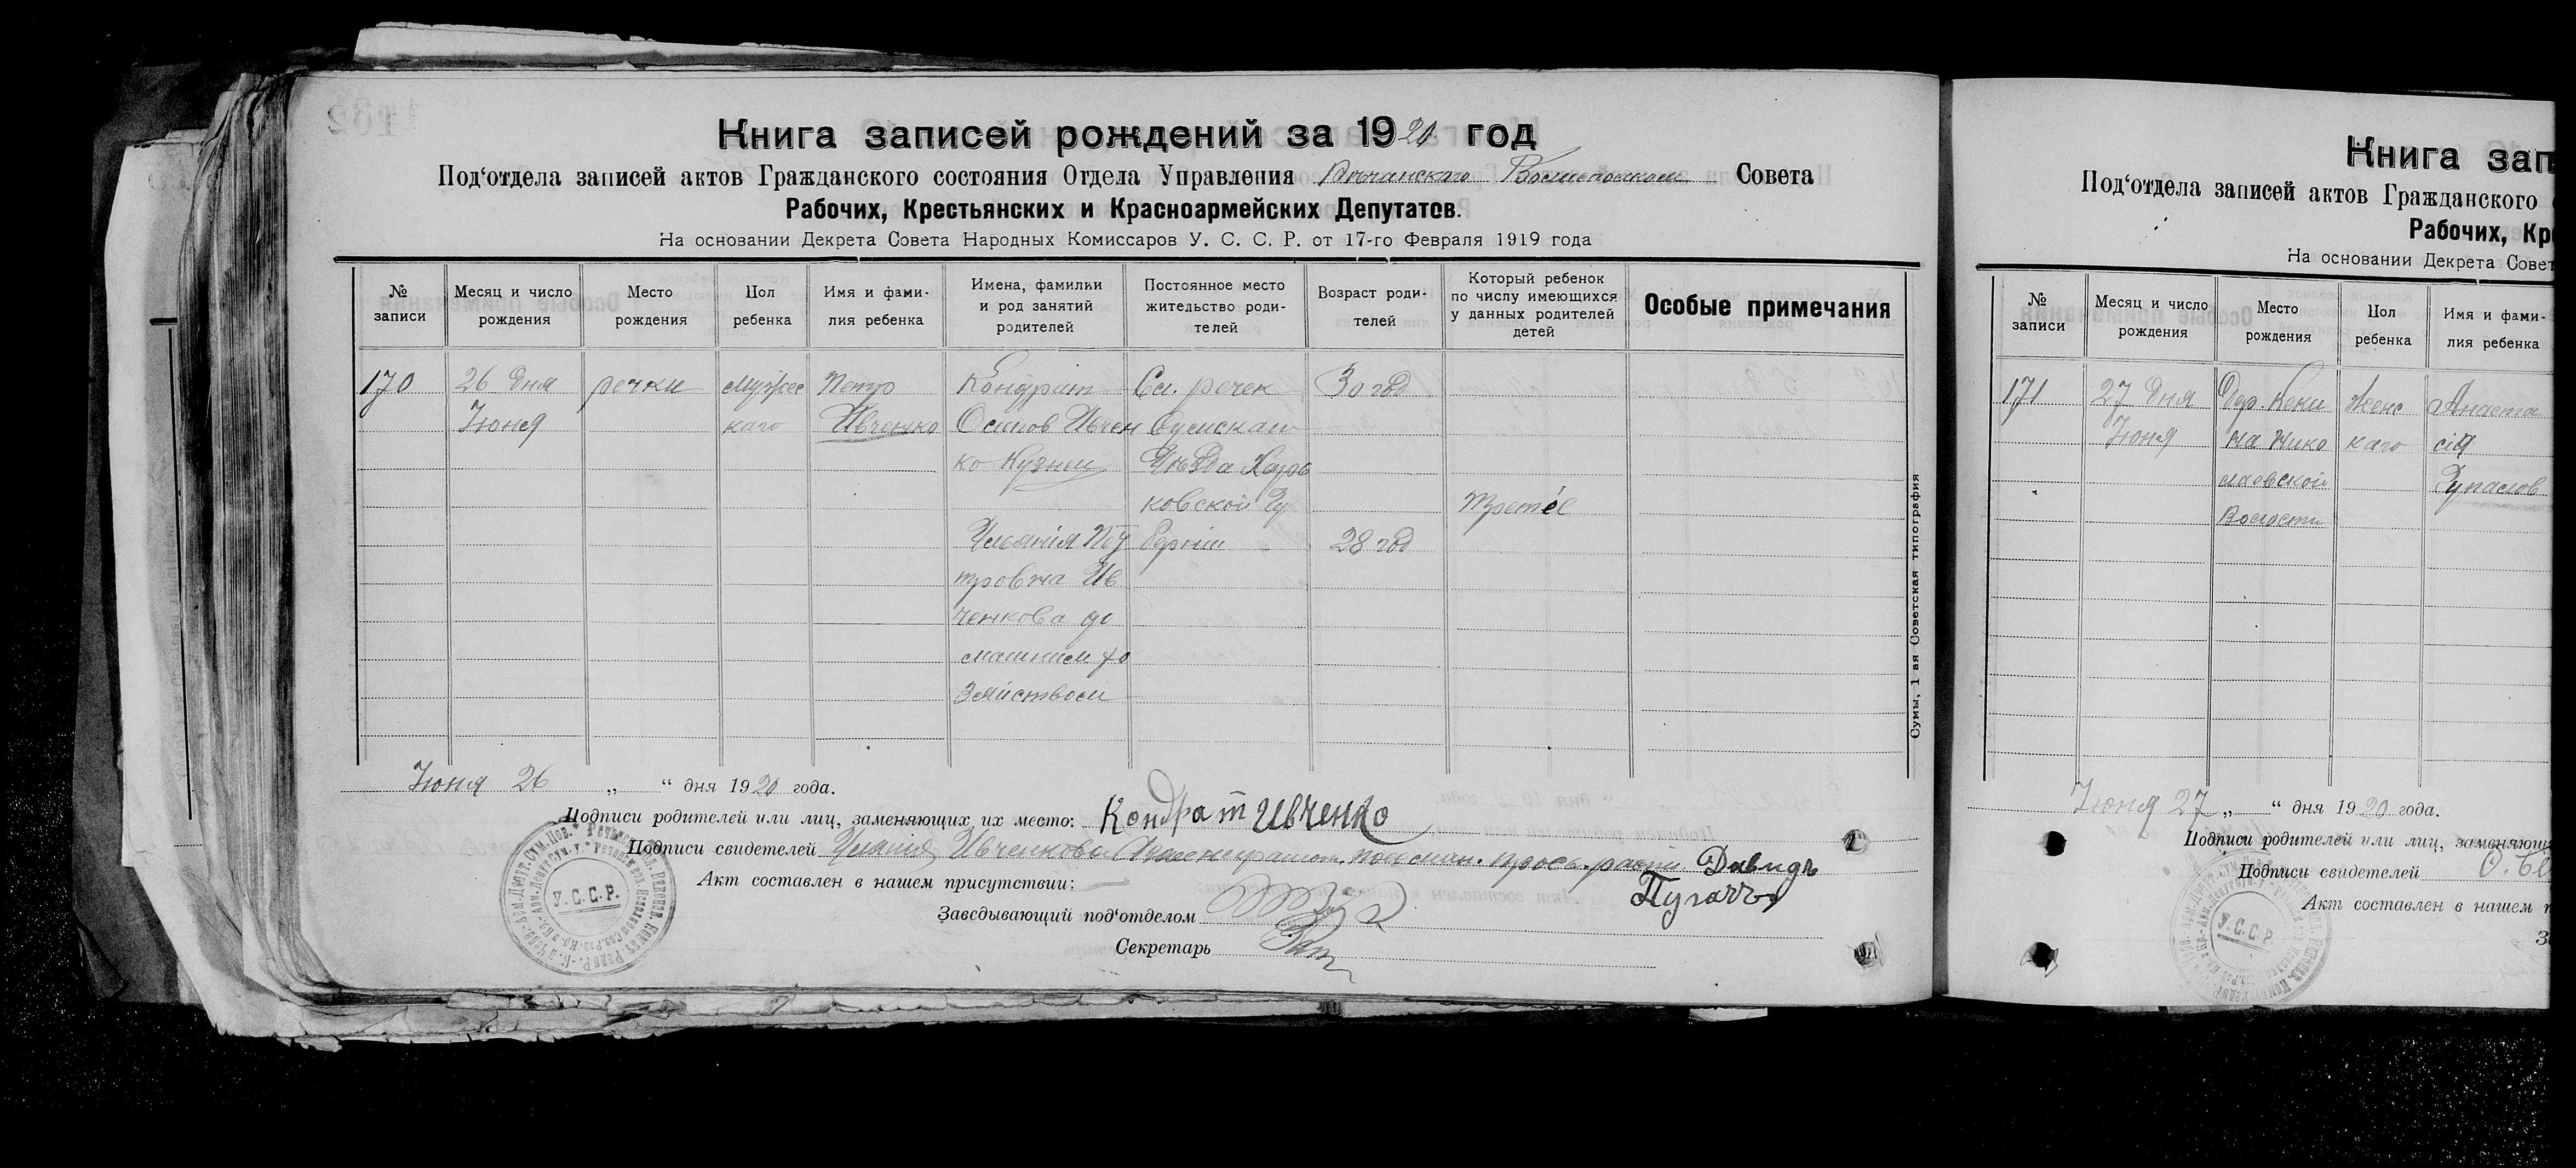 Книга записей рождений за 1920 год
Под‘отдела записей актов Гражданского состояния Отдела Управления Совета
Рабочих, Крестьянских и Красноармейских Депутатов.
На основании Декрета Совета Народных Комиссаров У. С. С. Р. от 17-го Февраля 1919 года
№ записи
Месяц и число рождения
Место рождения
Пол ребенка
Имя и фамилия ребенка
Имена, фамилии и род занятий родителей
Постоянное место жительство родителей
Возраст родителей
Который ребенок по числу имеющихся у данных родителей детей
Особые примечания
170
26 дня
Июня
речки
Мужес
каго
Петр
Ивченко
Кондрат
Осипов Ивчен
ко Кузнец
Ульянія Пет
тровна Ив
ченкова до
машним хо
зяйством
Сл. речек
Сумскаго
Уѣзда Харь
ковской Гу
берніи
30 год
28 год
Третье
Июня 26 „ “ дня 1920 года.
Подписи родителей или лиц, заменяющих их место: Кондрат Ивченко
Подписи свидетелей Ульянія Ивченкова Давидъ
Пугачъ
Акт составлен в нашем присутствии:
Заведывающий под‘отделом
Секретарь
У. С. С. Р.
Сумы, 1 ая Советская типография
Книга зап
Под‘отдела записей актов Гражданского
Рабочих, Кре
На основании Декрета Совет
№ записи
Месяц и число рождения
Место рождения
Пол ребенка
Имя и фамилия ребенка
171
27 дня
Июня
на Нико
лаевской
Волости
Женс
каго
Анаста
сія
Июня 27 „ “ дня 1920 года.
Подписи родителей или лиц, заменяющ
Подписи свидетелей
Акт составлен в нашем п
У. С. С. Р.